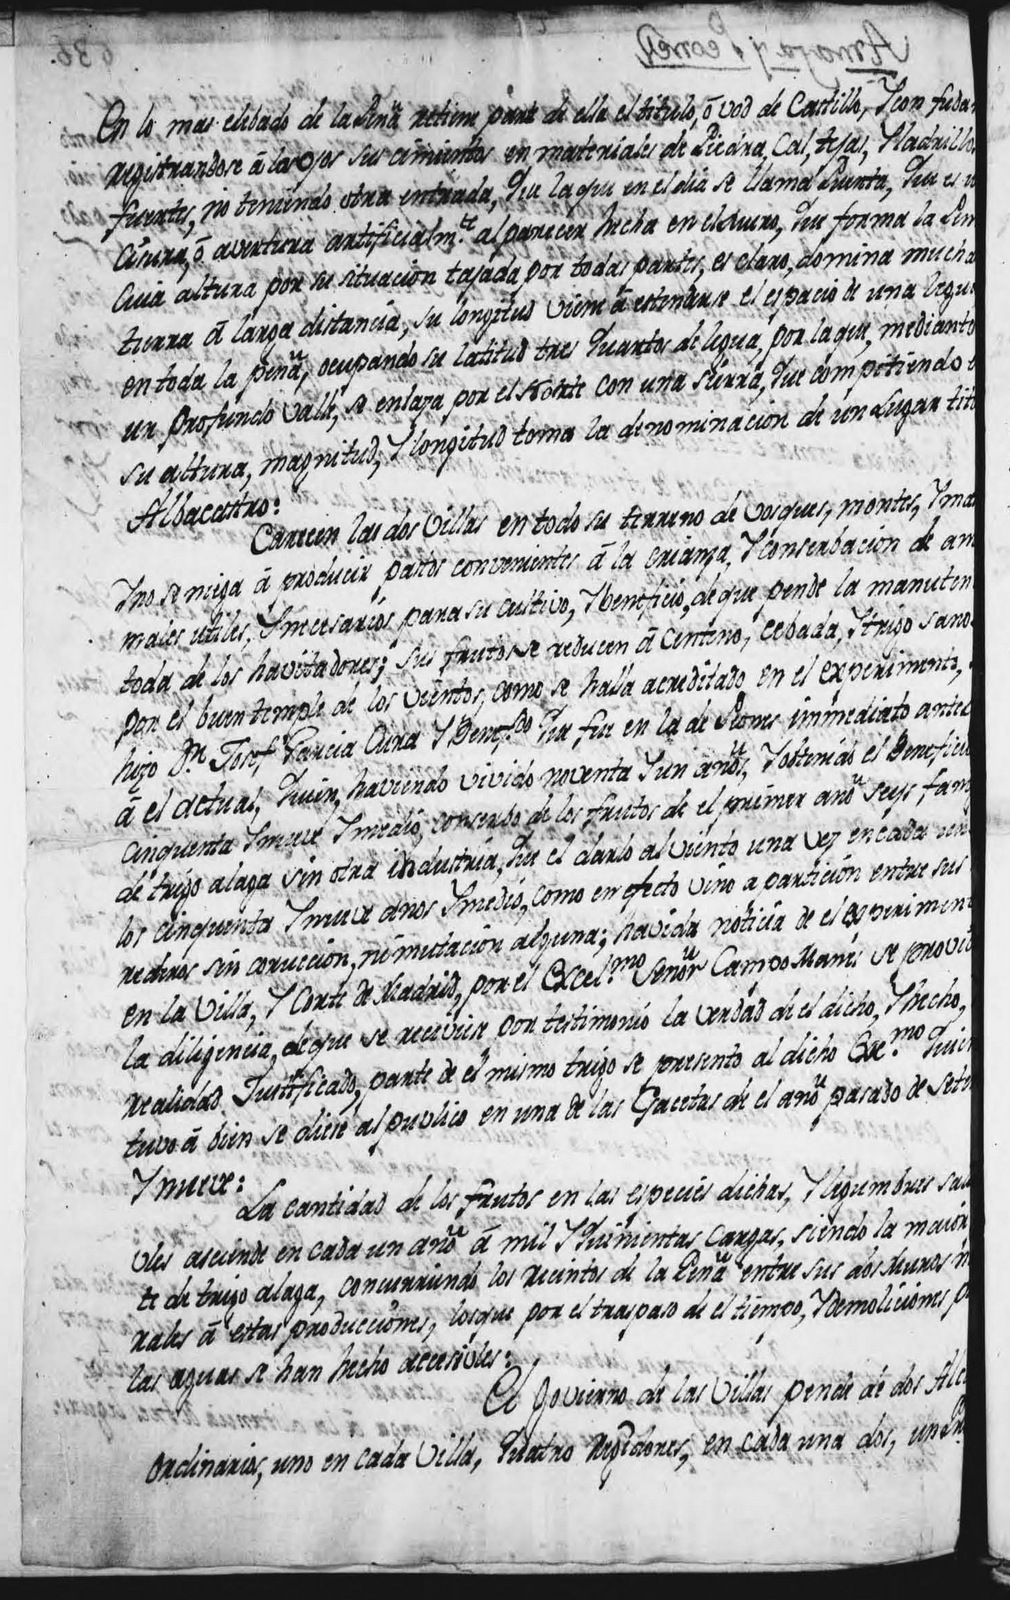 En lo mas elebado de la Peñã retiene parte de ella el titulo, ō vod de Castillo, Y con fuda
registrandose ā la ojos sus cimientos en materiales de Piedra, Cal, tejas, Y ladrillo
fuertes, no teniendo otra entrada, que la que en el dia se llama Puerta, que es
Cisura, ō avertura artificialmte al parecer hecha en el Muro, que forma la Peñ
Cuia altura por su situacion tajada por todas partes, es claro, domina mucha
tierra ā larga distancia, su longitud viene ā estenderse el espacio de una legu
en toda la peñã, ocupando su latitud tres quartos de legua, por la que, mediante
un profundo valle, se enlaza por el Norte con una sierra, que compitiendo
su altura, magnitud, Y longitud toma la denominacion de un Lugar tit
Albacastro:
Carecen las dos Villas en todo su terreno de vosques, montes, Y ma
Y no se niega ā producir pastos convenientes ā la crianza, Y conserbacion de ani
males utiles, Y necesarios para su cultivo, Y beneficio, de que pende la manuten
toda de los havitadores; sus frutos se reducen ā centeno, cebada, Y trigo sano
por el buen temple de los vientos, como se halla acreditado en el experimento,
hizo Dn Josef Garcia Cura Y Benefdo que fue en la de Peones immediato antec
ā el actual, quien, haviendo vivido noventa Y un años, Y obtenido el Beneficio
cinquenta Y nueve Y medio, conserbo de los frutos de el primer año seys faneg
de trigo alaga sin otra industria, que el darlo al viento una vez en cada uno
los cinquenta Y nueve años Y medio, como en efecto vino a particion entre sus
rederos sin corrucion, ni mutacion alguna; havida noticia de el experiment
en la Villa, Y Corte de Madrid, por el Excelmo Señor Campo Manes se probi
la diligencia, de que se recivier por testimonio la verdad de el dicho, Y hecho,
realidad Justificado, parte de el mismo trigo se presento al dicho Exmo quien
tuvo ā bien se diese al publico en una de las Gacetas de el año pasado de sete
Y nueve:
La cantidad de los frutos en las especies dichas, Y legumbres sa
bles asciende en cada un año ā mil Y quinientas cargas, siendo la maior
te de trigo alaga, concurriendo los recintos de la Peñã entre sus dos muros
rales ā estas producciones, los que por el traspaso de el tiempo, Y demoliciones
las aguas se han hecho accesibles:
El govierno de las Villas pende de dos Alc
Ordinarios, uno en cada Villa, quatro Regidores, en cada una dos, un